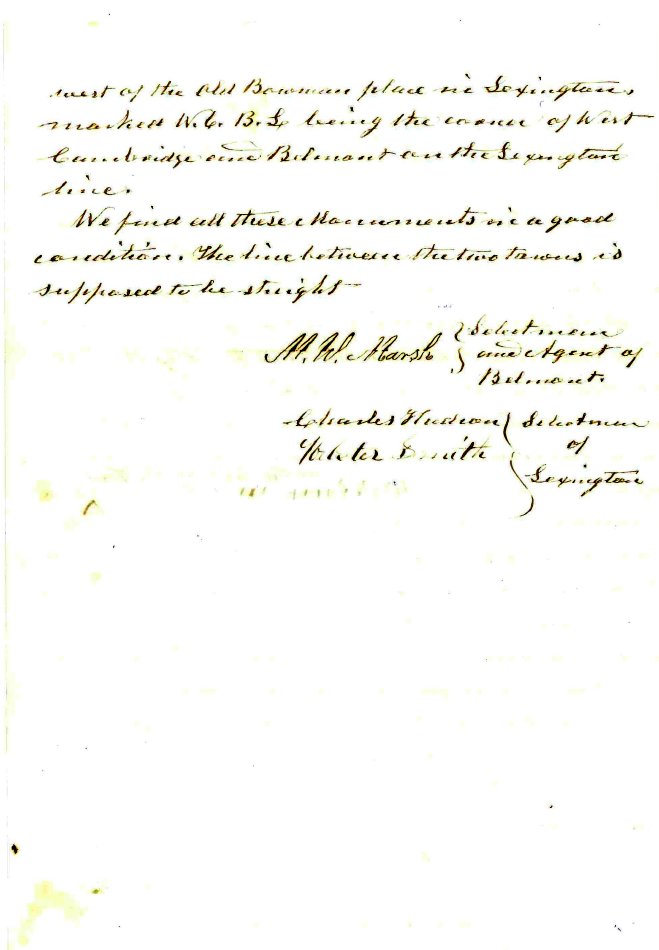 west of the Old Bowman place in Lexington,
marked W.C. B.L being the corner of West
Cambridge and Belmont on the Lexington
line.
We find all these Monuments in a good
condition. The line between the two towns is
supposed to be straight
M. W. Marsh
Selectman
and Agent of
Belmont.
Charles Hudson
Webster Smith
Selectmen
of
Lexington